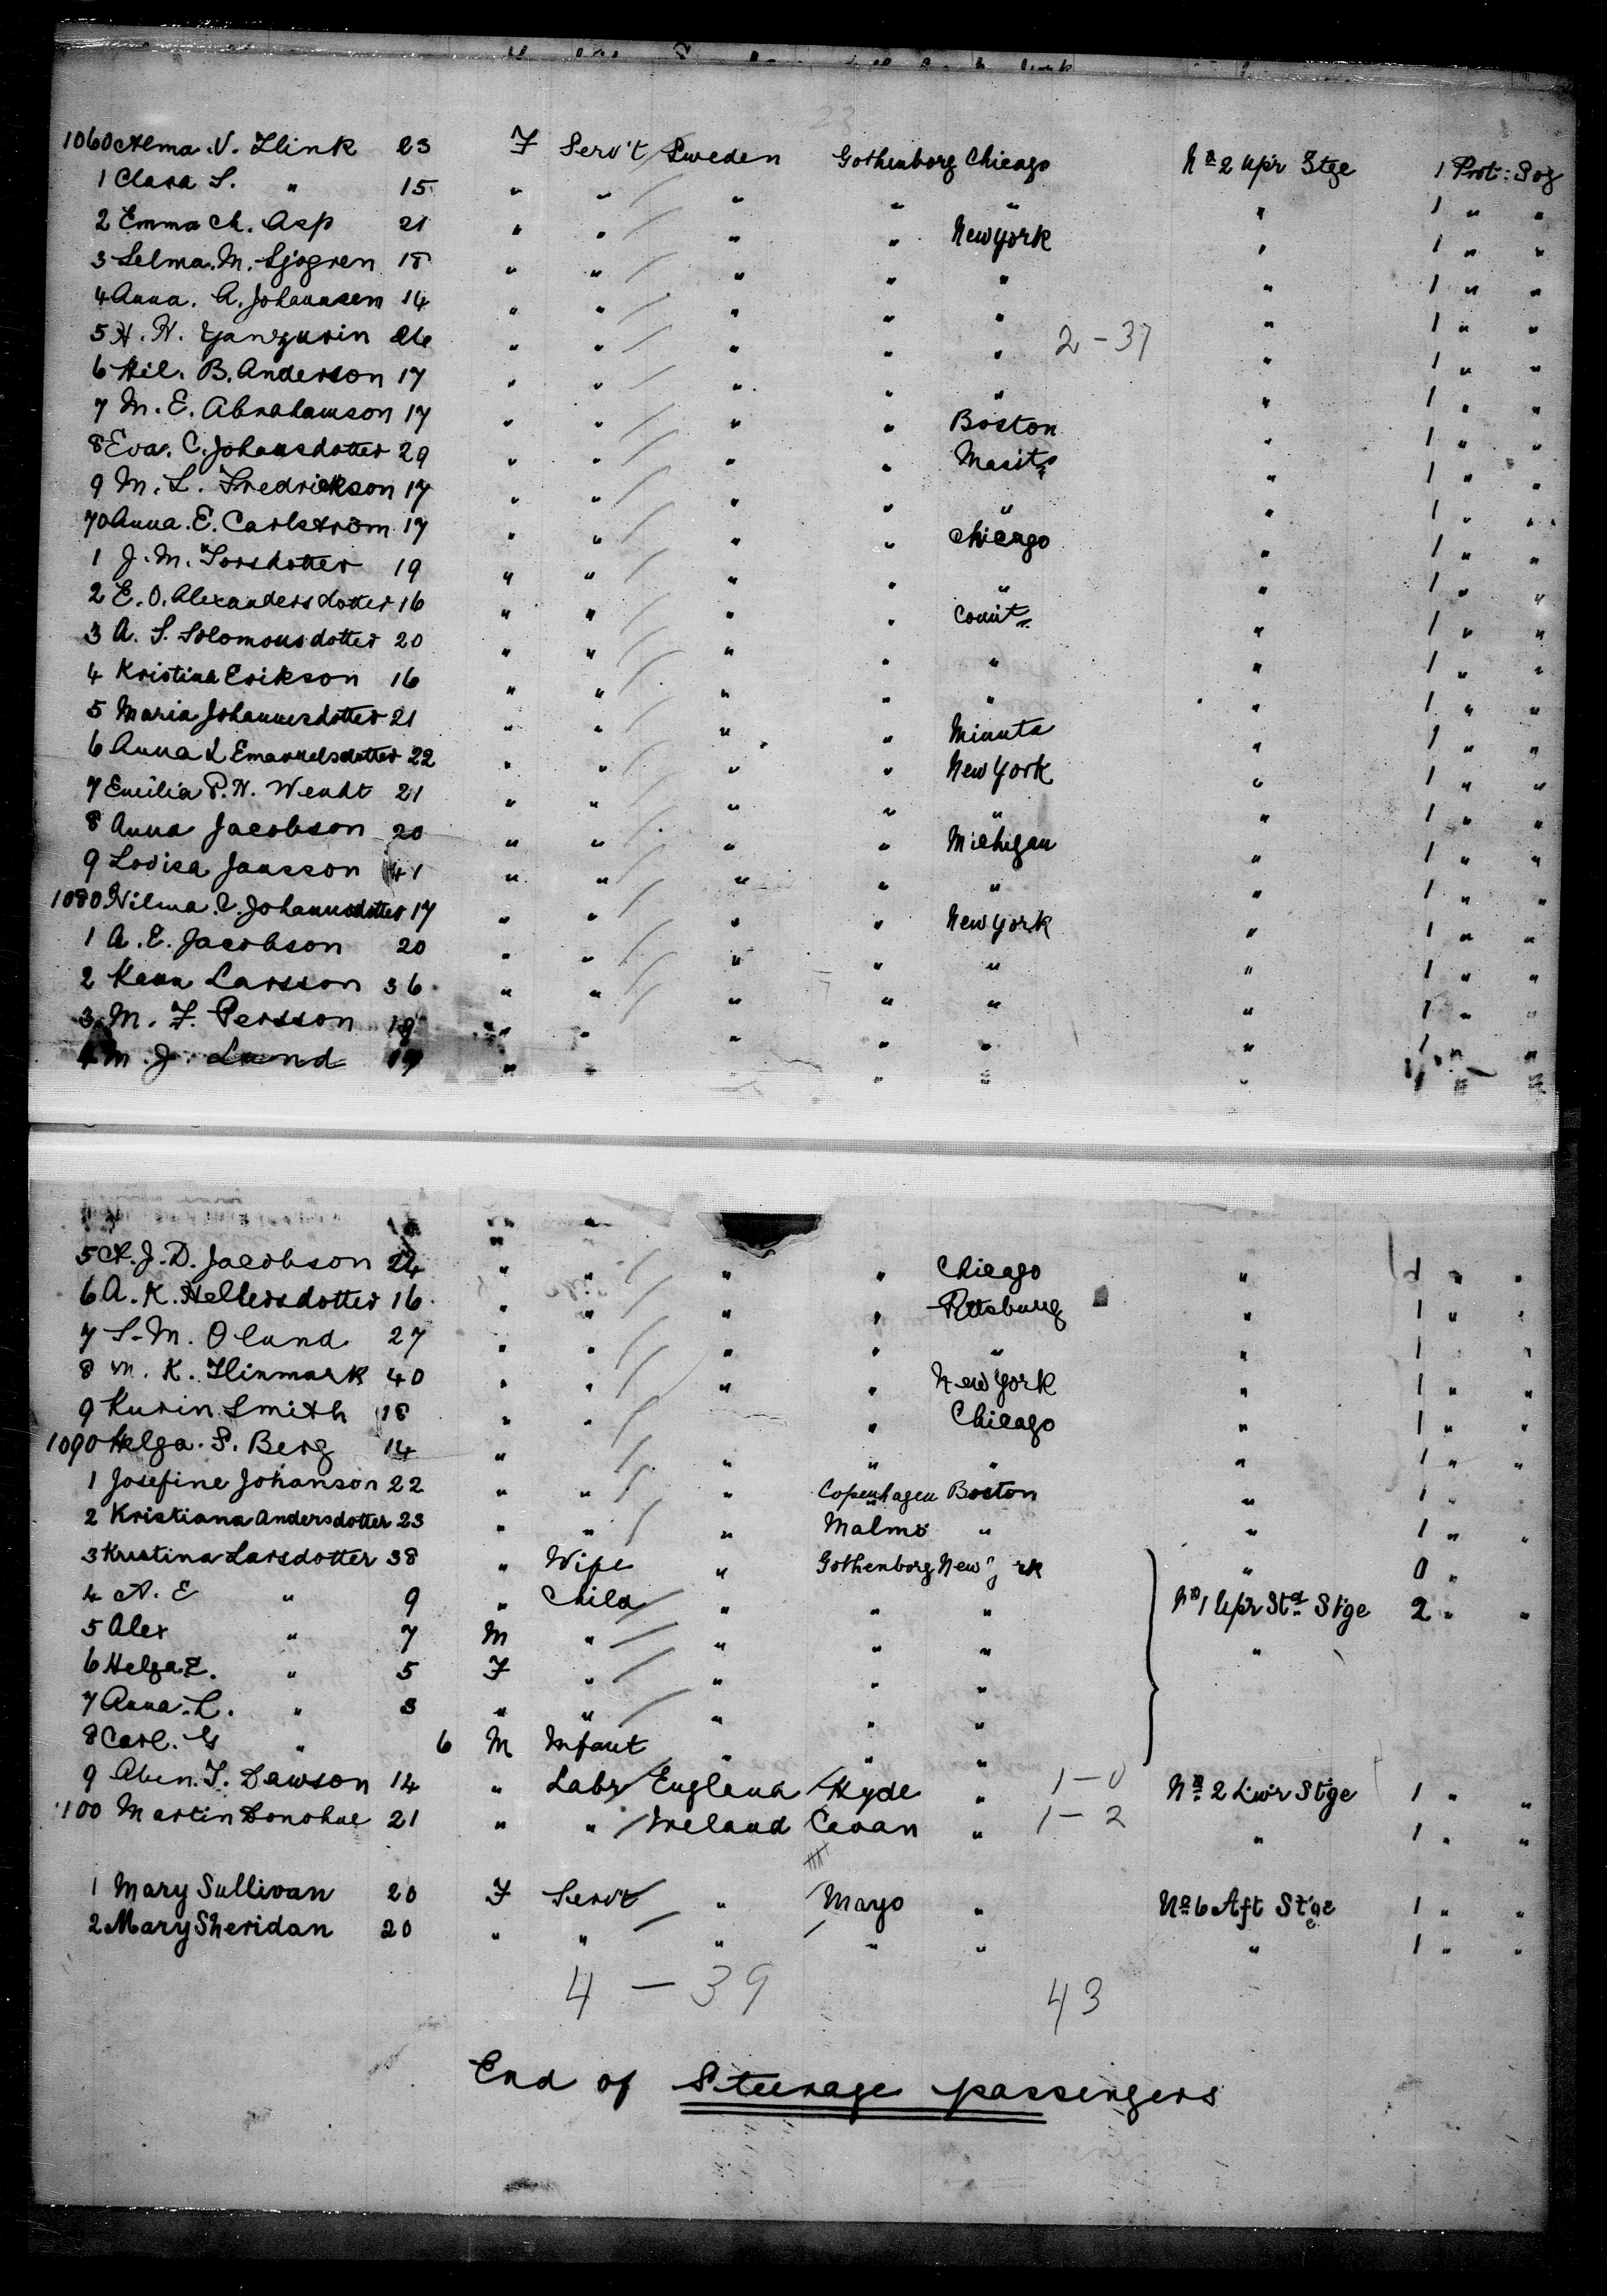 1060 Alma V. Flink 23 F Serv't Sweden Gothenborg Chicago No 2 Upr Stge 1 Prot: Sog
1 Clara S. " 15 " " " " " " 1 " "
2 Emma Ch. Asp 21 " " " " New York " 1 " "
3 Selma. M. Sjogren 18 " " " " " " 1 " "
4 Anna. A. Johannsen 14 " " " " " " 1 " "
5 H. H. 26 " " " " " 2-37 " 1 " "
6 Hil. B. Anderson 17 " " " " " " 1 " "
7 M. E. Abrahamson 17 " " " " Boston " 1 " "
8 Eva. C. Johansdotter 29 " " " " " 1 " "
9 M. L. Fredrickson 17 " " " " " " 1 " "
70 Anna. E. Carlström 17 " " " " Chicago " 1 " "
1 J. M. Torsdotter 19 " " " " " " 1 " "
2 E. O. Alexandersdotter 16 " " " " Connt " 1 " "
3 A. S. Solomonsdotter 20 " " " " " " 1 " "
4 Kristina Erikson 16 " " " " " " 1 " "
5 Maria Johannesdotter 21 " " " " Minnta " 1 " "
6 Anna L Emanuelsdotter 22 " " " " New York " 1 " "
7 Emilia P. H. Wendt 21 " " " " " " 1 " "
8 Anna Jacobson 20 " " " " Michigan " 1 " "
9 Lovisa Jansson 41 " " " " " " 1 " "
1080 Hilma. C. Johannsdotter 17 " " " " New York " 1 " "
1 A. E. Jacobson 20 " " " " " " 1 " "
2 Karin Larsson 36 " " " " " " 1 " "
3 M. F. Persson 19 " " " " " " 1 " "
4 M. J. Lund 19 " " " " " 1 " "
5 A. J. D. Jacobson 24 " " " " Chicago " 1 " "
6 A. K. Hellersdotter 16 " " " " Pittsburg " 1 " "
7 S. M. Olund 27 " " " " " " 1 " "
8 M. K. Flinmark 40 " " " " New York " 1 " "
9 Kurin Smith 18 " " " Chicago " 1 " "
1090 Helga. S. Berg 14 " " " " " 1 " "
1 Josefine Johanson 22 " " " Copenhagen Boston " 1 " "
2 Kristiana Andersdotter 23 " " " Malmö " " 1 " "
3 Kristina Larsdotter 38 " Wife " Gothenborg New rk " 0 "
4 A. E " 9 " Child " " " No 1 Upr Std Stge 2 " "
5 Alex " 7 M " " " " "
6 Helga E. " 5 F " " " "
7 Anna. L. " 3 " " " " "
8 Carl. G " 6 M Infant " " "
9 Aben. T. Dawson 14 " Labr England Hyde " 1-0 No 2 Lwr Stge 1 " "
1100 Martin Donohue 21 " " Ireland Cavan " 1-2 " 1 " "
1 Mary Sullivan 20 F Serv't " Mayo " No 6 Aft Stge 1 " "
2 Mary Sheridan 20 " " " " " " 1 " "
4 - 39 43
End of Steerage passengers